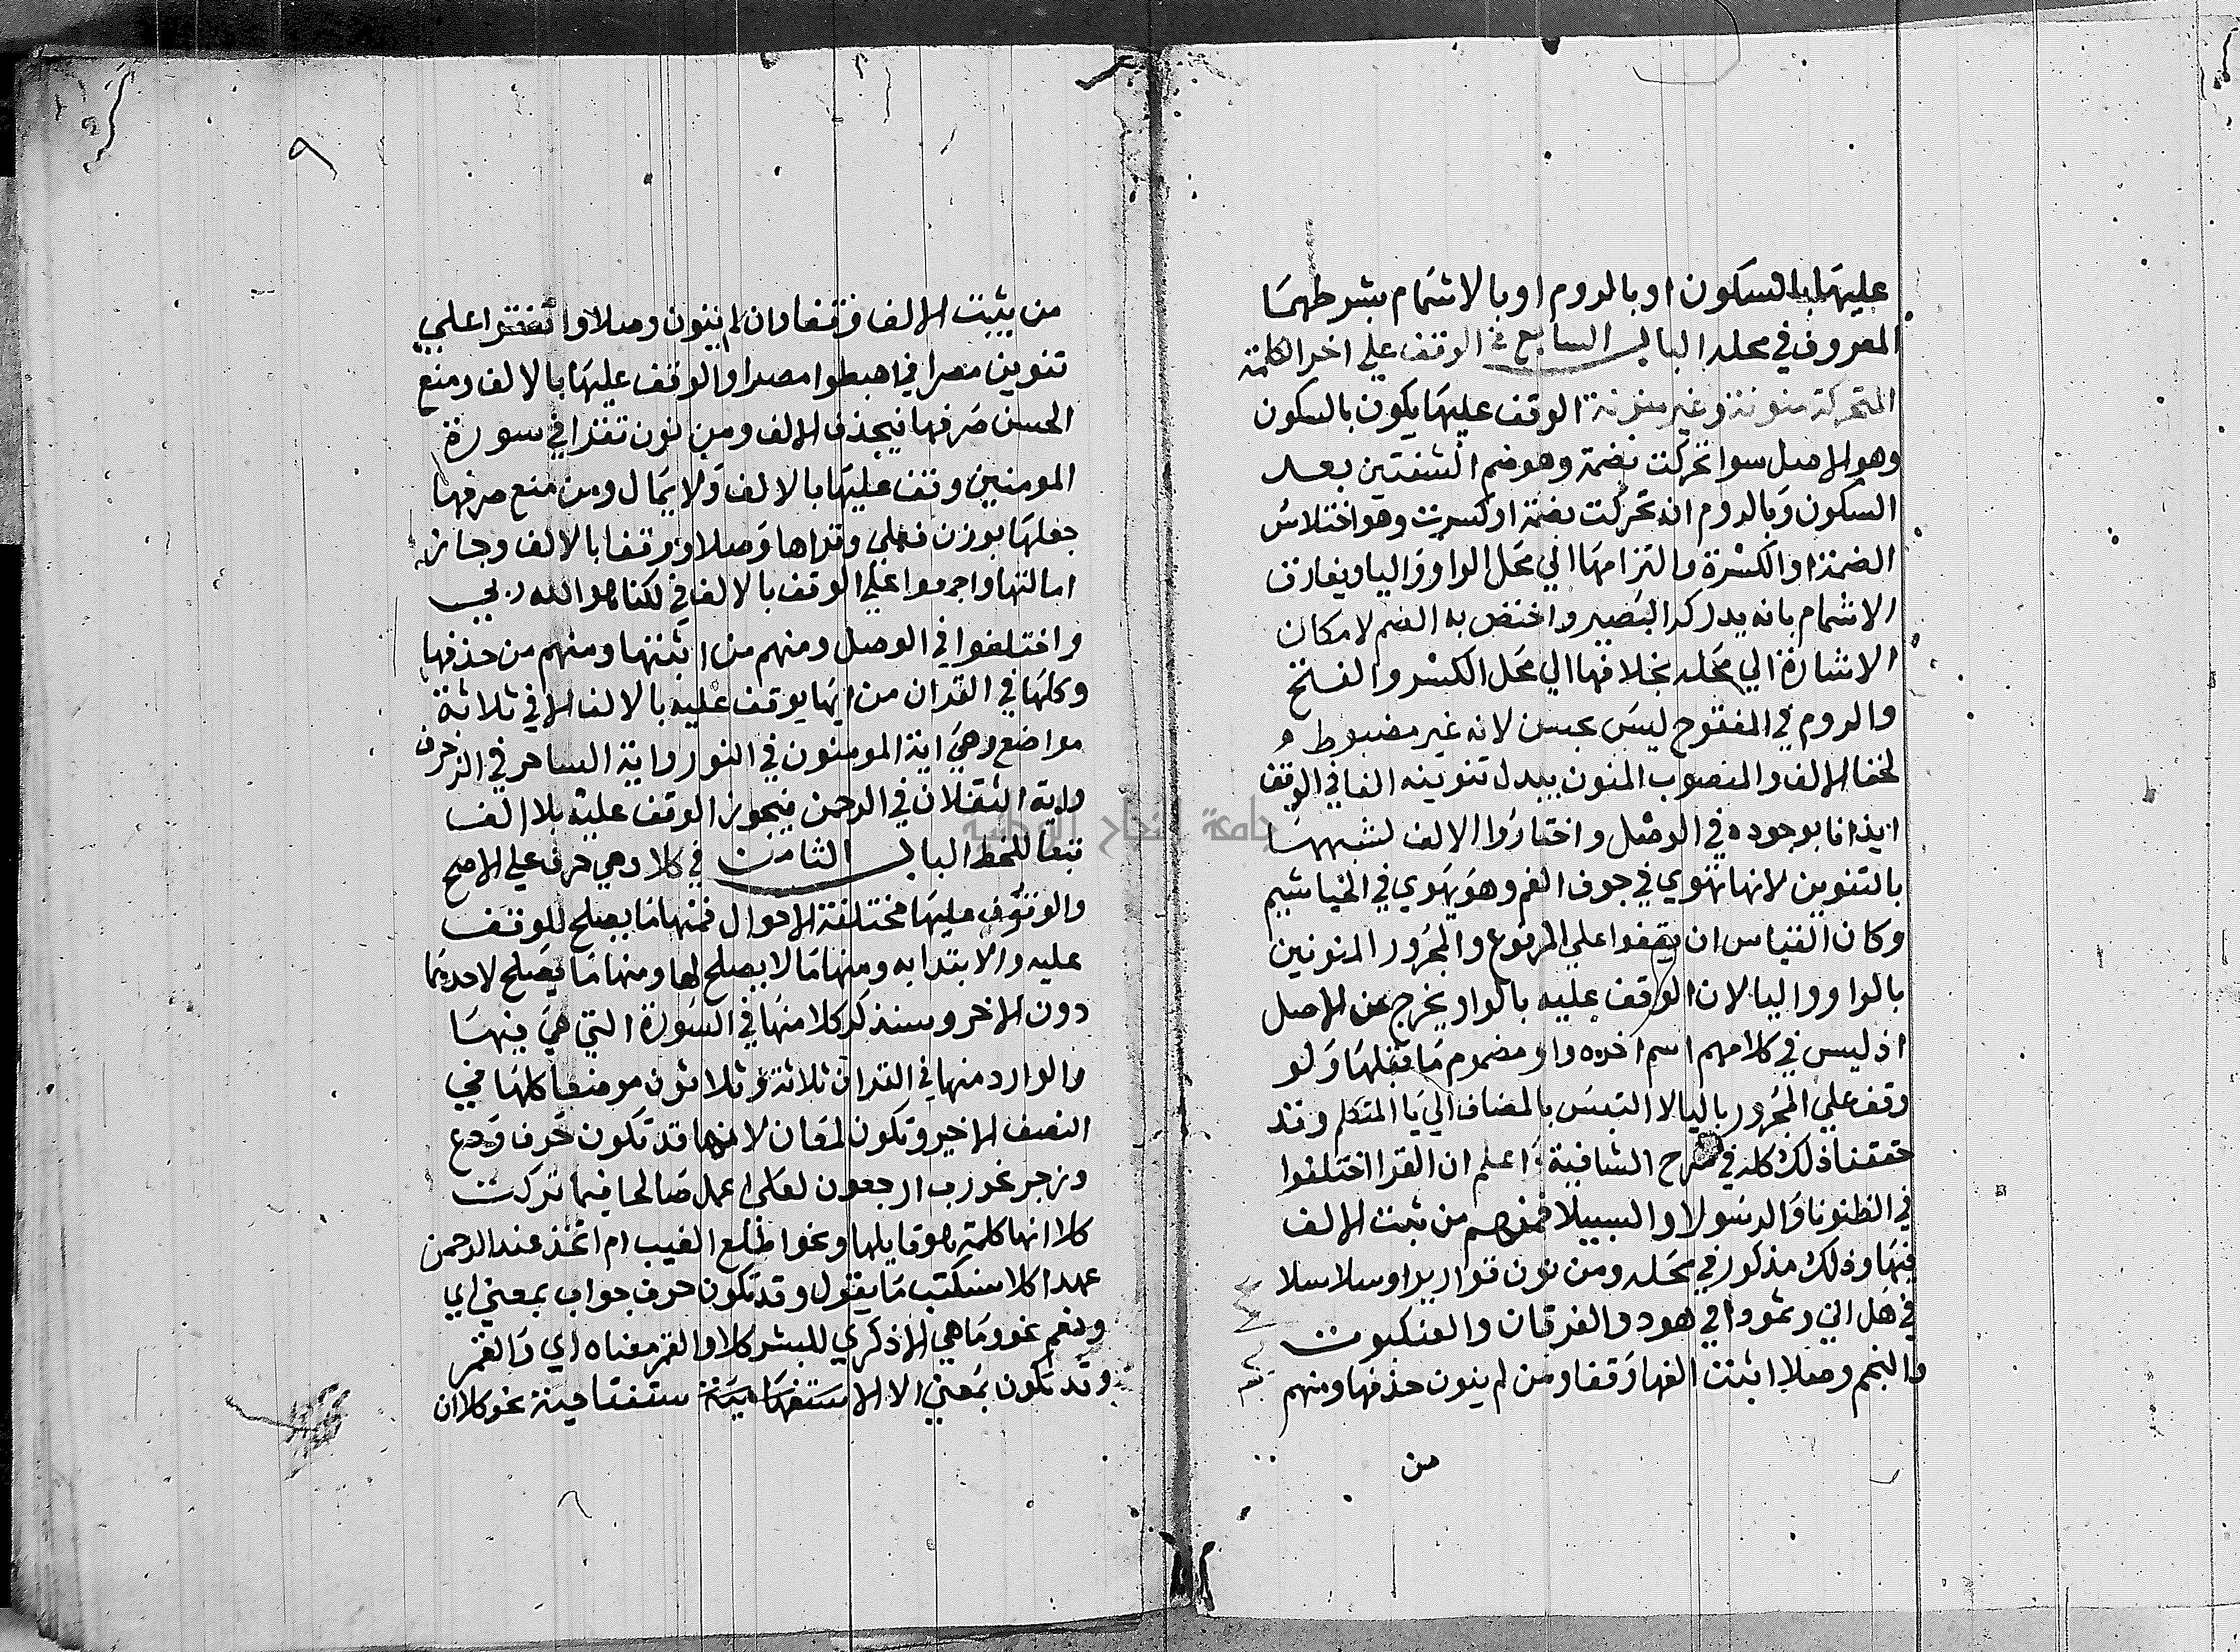 عليها بالسكون او بالروم او بالاشمام بشرطهما
المعروف في محله الباب السابع في الوقف علي اخر الكلمة
المتحركة منونة وغير منونة الوقف عليها يكون بالسكون
وهو الاصل سوا تحركت بضمة وهو ضم الشفتين بعد
السكون وبالروم ان تحركت بضمة او كسرت وهو اختلاس
الضمة او الكسرة والتزامها الي محل الواو واليا ويفارق
الاشمام بانه يدركه البصير واختص به الضم لامكان
الاشارة الي محله بخلافها الي محل الكسر والفتح
والروم في المفتوح ليس بحسن لانه غير مضبوط و
لخفا الالف والمنصوب المنون يبدل تنوينه الفا في الوقف
ايذانا بوجوده في الوصل واختاروا الالف لشبهها
بالتنوين لانها تهوي في جوف الفم وهو يهوي في الخياشيم
وكان القياس ان يقفوا علي المرفوع والمجرور المنونين
بالواو واليا لان الوقف عليه بالواو يخرج عن الاصل
اذ ليس في كلامهم اسم اخره واو مضموم ما قبلها ولو
وقف علي المجرور باليا لا التبس بالمضاف الي يا المتكلم وقد
حققنا ذلك كله في شرح الشافية واعلم ان القرا اختلفوا
في الظنونا والرسولا والسبيلا فمنهم من ثبت الالف
فيها وذلك مذكور في محله ومن نون قواريرا وسلاسلا
في هل اتي وثمودا في هود والفرقان والعنكبوت
والنجم وصلا اثبت الفها وقفا ومن لم ينون حذفها ومنهم
من
٩
من يثبت الالف وقفا وان لم ينون وصلا واتفقوا علي
تنوين مصرا في اهبطوا مصرا والوقف عليها بالالف ومنع
الحسن صرفها فيحذف الالف ومن نون تقرا في سورة
المومنين وقف عليها بالالف ولا يمال ومن منع صرفها
جعلها بوزن فعلي وقراها وصلا ووقفا بالالف وجاز له
امالتها واجمعوا علي الوقف بالالف في لكنا هو الله ربي
واختلفوا في الوصل ومنهم من اثبتها ومنهم من حذفها
وكلما في القران من ايها يوقف عليه بالالف الا في ثلاثة
مواضع وهي اية المومنون في النور واية الساحر في الزخرف
واية الثقلان في الرحمن فيجوز الوقف عليه بلا الف
تبعا للخط الباب الثامن في كلا وهي حرف علي الاصح
والوقوف عليها مختلفة الاحوال فمنها ما يصلح للوقف
عليه والابتدا به ومنها ما لا يصلح لها ومنها ما يصلح لاحدهما
دون الاخر وسنذكر كلا منها في السورة التي هي فيها
والوارد منها في القران ثلاثة وثلاثون موضعا كلها في
النصف الاخير وتكون لمعان لانها قد تكون حرف ردع
وزجر نحو رب ارجعون لعلي اعمل صالحا فيما تركت
كلا انها كلمة هو قايلها ونحو اطلع الغيب ام اتخذ عند الرحمن
عهدا كلا سنكتب ما يقول وقد تكون حرف جواب بمعني اي
ونعم نحو وما هي الا ذكري للبشر كلا والقمر معناه اي والقمر
وقد تكون بمعني الا الاستفهامية ستفتاحية نحو كلا ان
جامعة النجاح الوطنية